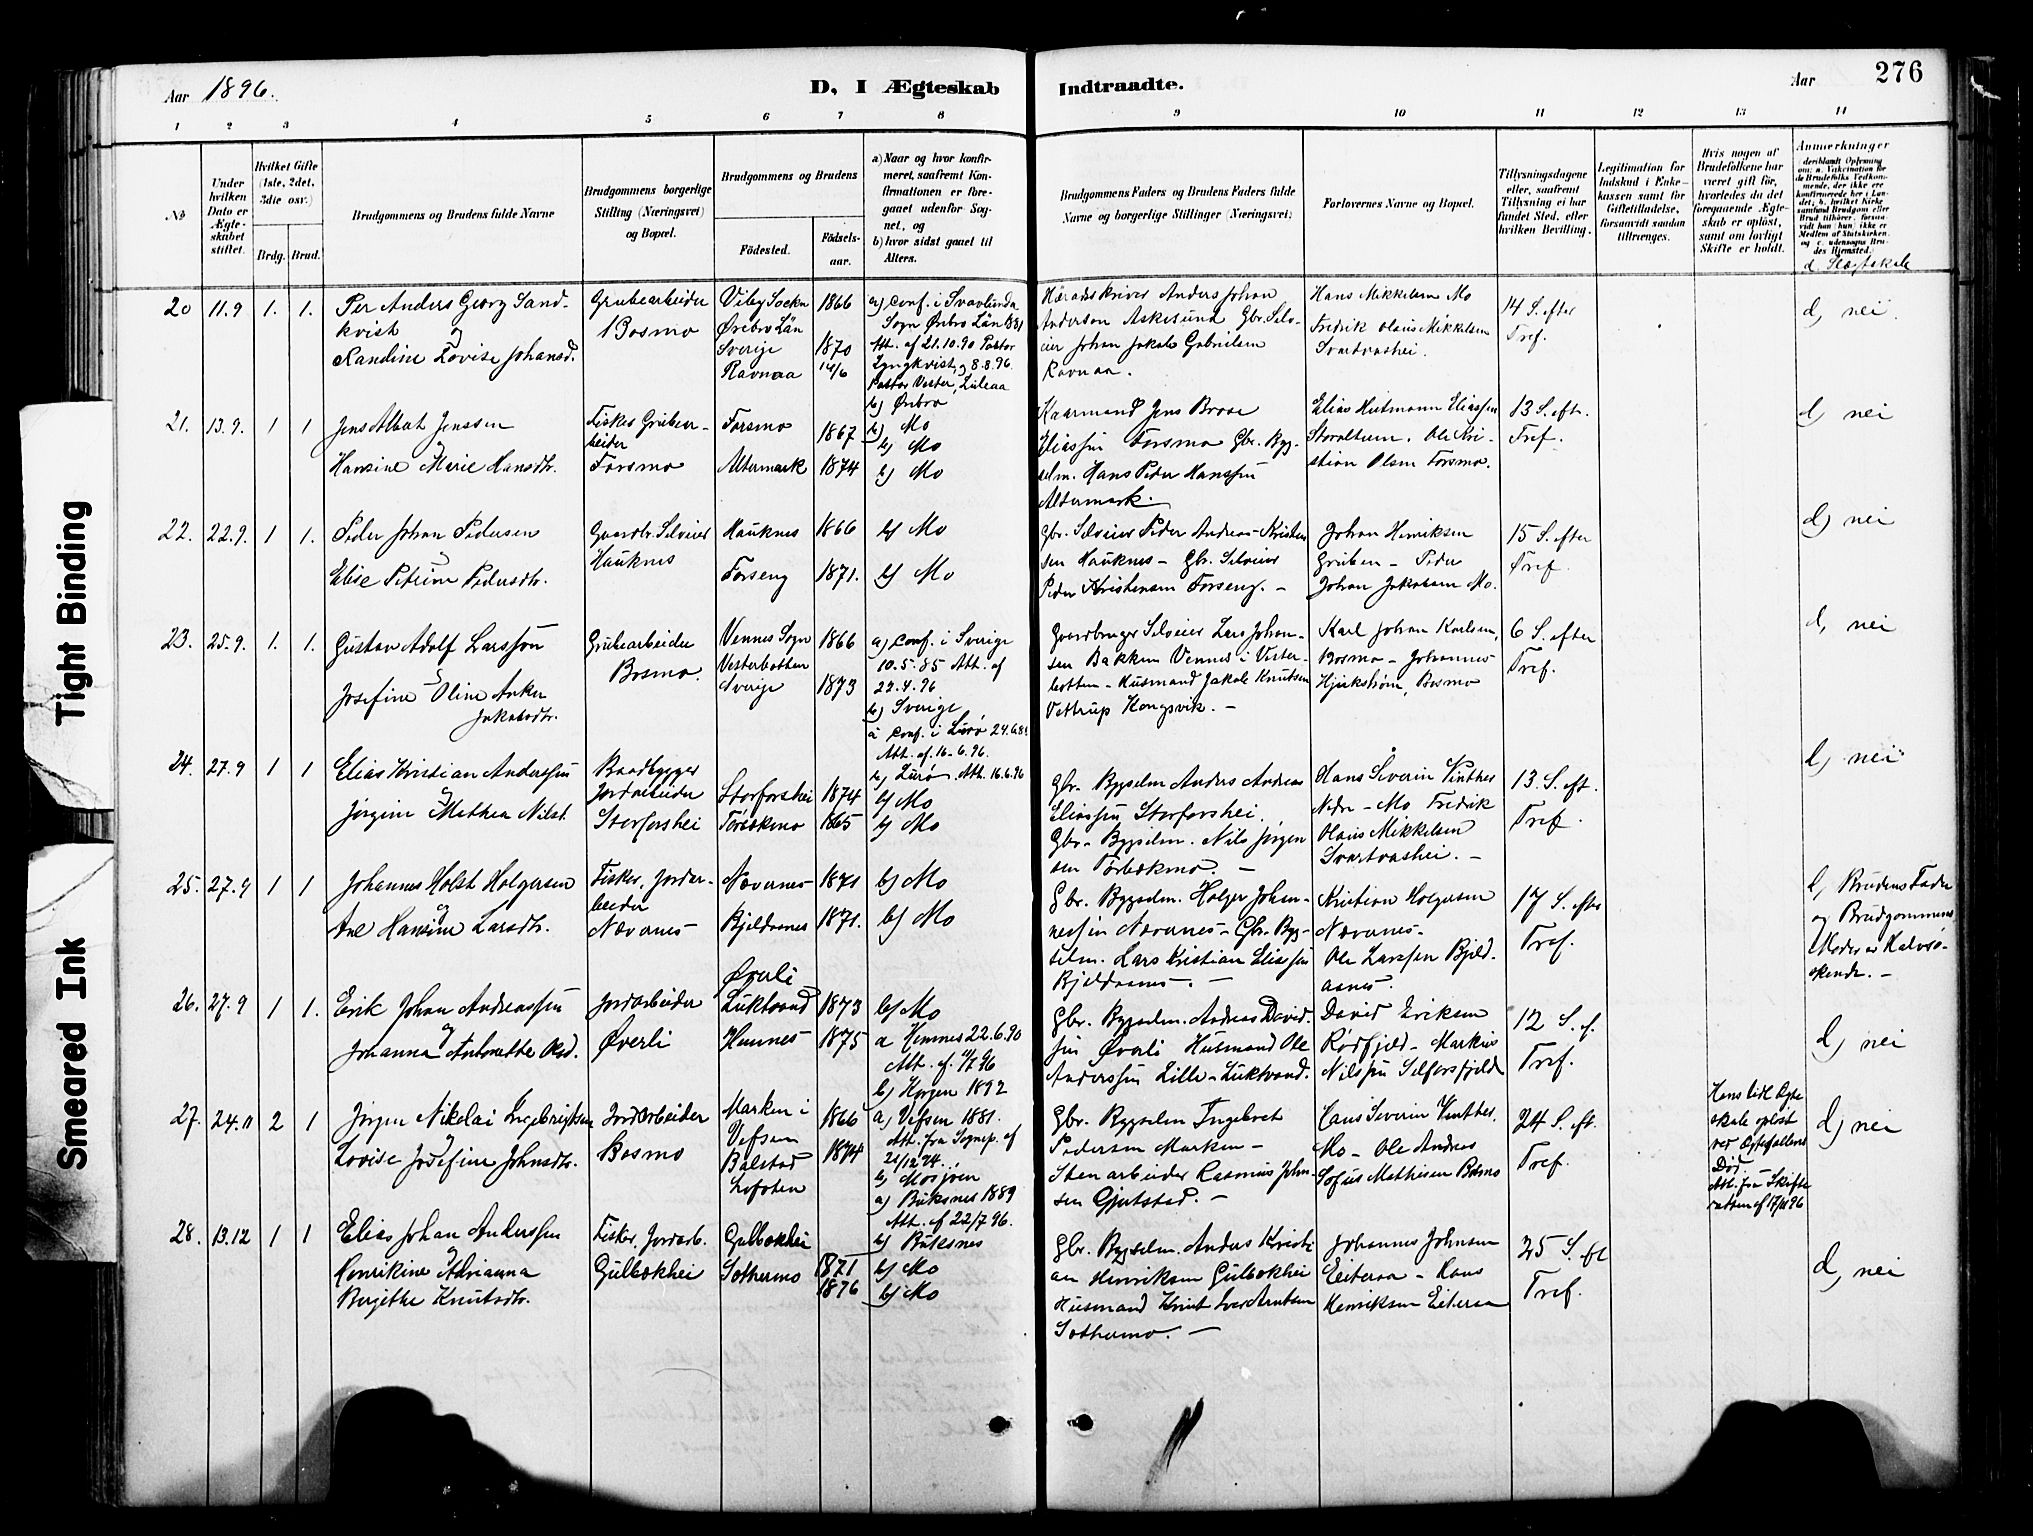 Aar 1896.
D, I Ægteskab
Indtraadte.
Aar
276
1 2 3 4 5 6 7 8 9 10 11 12 13 14
No
Under hvilken Dato er Ægteskabet stiftet.
Hvilket Gifte (1ste, 2det, 3die osv.)
Brdg. Brud.
Brudgommens og Brudens fulde Navne
Brudgommens borgerlige Stilling (Næringsvei) og Bopæl.
Brudgommens og Brudens
Fødested.
Fødselsaar.
a) Naar og hvor konfirmeret, saafremt Konfirmationen er foregaaet udenfor Sognet, og
b) hvor sidst gaaet til Alters.
Brudgommens Faders og Brudens Faders fulde Navne og borgerlige Stillinger (Næringsvei)
Forlovernes Navne og Bopæl.
Tillysningsdagene eller, saafremt Tillysning ei har fundet Sted, efter hvilken Bevilling.
Legitimation for Indskud i Enkekassen samt for Giftetilladelse, forsaavidt saadan tiltrænges.
Hvis nogen af Brudefolkene har været gift før, hvorledes da det foregaaende Ægteskab er opløst, samt om lovligt Skifte er holdt.
Anmerkninger
d Slægtskab
20
11.9
1. 1.
Per Anders Georg Sand-
kvist
og
Randine Lovise Johansd.
Grubearbeider
Bosmo
Viby Sockn
Örebro Län
Sverige
Ravnaa
1866
1870
14/6
a) Conf. i Svavlunda
Sogn Ørebro Län
Att. af 21.10.90 Pastor
Lyngkvist, og 8.8.96
Pastor Vester, Luleaa
b) Örebro
Häradsskriver Anders Johan
Anderson Askersund Gbr. Selv-
eier Johan Jakob Gabrielsen
Ravnaa.
Hans Mikkelsen Mo
Fredrik Olaus Mikkelsen
Svartvashei.
14 S. efter
Tref.
d, nei.
21.
13.9.
1 1
Jens Albert Jenssen
Hansine Marie Hansdtr.
Fisker Grubear-
beider
Forsmo
Forsmo
Altermark
1867
1874
b) Mo
b) Mo
b) Mo
Kaarmand Jens Brose
Eliassen Forsmo Gbr. Byg-
selm. Hans Peder Hanssen
Altermark.
Elias Hutmann Eliassen
Storalteren. Ole Kri-
stian Olsen Forsmo.
13 S. eft.
Tref.
d, nei
22.
22.9.
1 1.
Peder Johan Pedersen
og
Elise Petrine Pedersdtr.
Gaardbr. Selveier
Hauknes
Hauknes
Forseng
1866
1871.
b) Mo
b) Mo
Gbr. Selveier Peder Andreas Kristen
sen Hauknes - Gbr. Selveier
Peder Kristensen Forseng. -
Johan Henriksen
Gruben - Peder
Johan Jakobsen Mo.
15 S. efter
Tref.
d) nei
23.
25.9.
1. 1.
Gustav Adolf Larsson
og
Josefine Oline Anker
Jakobsdtr.
Grubearbeider
Bosmo.
Vennes Sogn
Vesterbotten
Sverige
1866
1873
a) Conf. i Sverige
10.5.85 Att. af
22.4.96
b) Sverige
a Conf. i Lurø 24.6.8
Att. af. 16-6.96.
b) Lurø. Att. 16.6.96
Gaardbruger Selveier Lars Johan-
sen Bakken Vennes i Vester-
botten - Husmand Jakob Knutsen
Vettrup Kongsvik. -
Karl Johan Karlsen,
Bosmo - Johannes
Hjukstrøm, Bosmo
6 S. efter
Tref.
d, nei
24.
27.9
1 1
Elias Kristian Anderssen
og
Jørgine Mathea Nilsd.
Baadbygger
Jordarbeider
Storforshei
Storforshei
Tørbækmo
1874
1865
b) Mo
b) Mo
Gbr. Bygselm. Anders Andreas
Eliassen Storforshei.
Gbr. Bygselm. Nils Jørgen
sen Tørbækmo. -
Hans Severin Vinther
Nedre-Mo Fredrik
Olaus Mikkelsen
Svartvashei. -
13. S. eft.
Tref.
d, nei
25.
27.9
1 1
Johannes Holst Holgersen
og
Ane Hansine Larsdtr.
Fisker, Jordar-
beider
Nævernes
Nævernes
Bjeldaanes
1871
1871.
b) Mo
b) Mo
Gbr. Bygselm. Holger Johan-
nessen Nævernes - Gbr. Byg-
selm. Lars Kristian Eliassen
Bjeldaanes. -
Kristian Holgersen
Nævernes -
Ole Larssen Bjeld-
aanes.
17 S. efter
Tref.
d, Brudens Fader
og Brudgommens
Moder er Halvsø-
skende. -
26.
27.9
1 1.
Erik Johan Andreassen
og
Johanna Antonette Olsd.
Jordarbeider
Øverli
Øverli
Luktvand
Hemnes
1873
1875
b) Mo
a Hemnes 22.6.90
Att. af. 96
b) Korgen 1892
Gbr. Bygselm. Andreas David-
sen Øverli Husmand Ole
Anderssen Lille-Luktvand.
David Eriksen
Rødfjeld - Markus
Nilssen Selforsfjeld
12 S. ef.
Tref.
d, nei
27.
24.11
2 1
Jørgen Nikolai Ingebrigtsen
og
Lovise Josefine Johnsdtr.
Jordarbeider
Bosmo
Marken i
Vefsen
Balstad
Lofoten
1866
1874
a) Vefsen 1881.
Att. fra Sognep. af
21/12 94.
b) Mosjøen
a) Buksnes 1889
Att. af 22/7 96.
b) Buksnes
Gbr. Bygselm. Ingebret
Pedersen Marken -
Stenarbeider Rasmus John-
sen Gjerstad. -
Hans Severin Vinther
Mo - Ole Andreas
Sofus Mathisen Bosmo
24 S. eft.
Tref.
Hans tidl. Ægte
skab opløst
ved Ægtefællens
Død.
Att. fra Skifte
retten af 17/11 96
d) nei
28.
13.12
1 1
Elias Johan Anderssen
og
Henrikine Adrianna
Bergithe Knutsdtr.
Fisker, Jordarb.
Gulbækhei
Gulbækhei
Sothermo
1871
1876
b) Mo
b) Mo
Gbr. Bygselm. Anders Kristi
an Henriksen Gulbækhei
Husmand Knut Iver Arntsen
Sothermo. -
Johannes Johnsen
Eiteraa - Hans
Henriksen Eiteraa
25 S. eft
Tref.
d, nei
Tight Binding
Smeared Ink